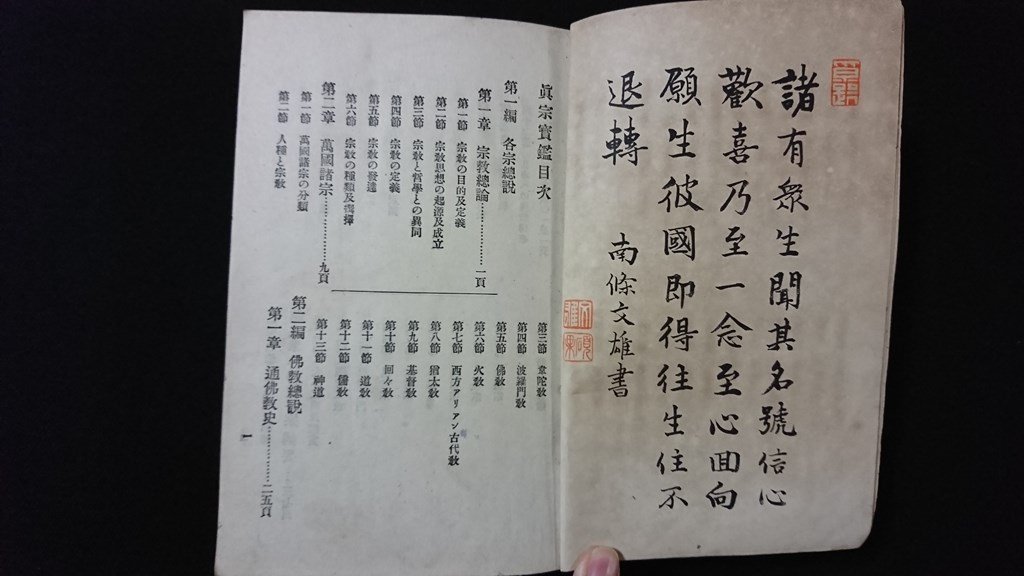 諸有衆生聞其名號信心
歡喜乃至一念至心回向
願生彼國即得往生住不
退轉
南條文雄書
眞宗寶鑑目次
第一編 各宗總說
第一章 宗敎總論…………一頁
第一節 宗敎の目的及定義
第二節 宗敎思想の起源及成立
第三節 宗敎と哲學との異同
第四節 宗敎の定義
第五節 宗敎の發達
第六節 宗敎の種類及選擇
第二章 萬國諸宗…………九頁
第一節 萬國諸宗の分類
第二節 人種と宗敎
第三節 韋陀敎
第四節 波羅門敎
第五節 佛敎
第六節 火敎
第七節 西方アリアン古代敎
第八節 猶太敎
第九節 基督敎
第十節 回々敎
第十一節 道敎
第十二節 儒敎
第十三節 神道
第二編 佛敎總說
第一章 通佛敎史…………二五頁
一